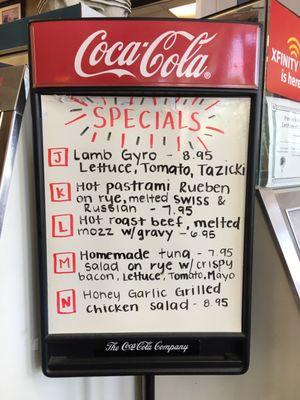 Coca-Cola
SPECIALS
J Lamb Gyro - 8.95
Lettuce, Tomato, Tazicki
K Hot pastrami Rueben
on rye, melted SWISS &
Russian - 7.95
L Hot roast beef, melted
mozz w/gravy - 6.95
M Homemade tuna - 7.95
salad on rye w/crispy
bacon, Lettuce, Tomato, Mayo
N Honey Garlic Grilled
chicken salad - 8.95
The Coca-Cola Company
XFINITY
is here